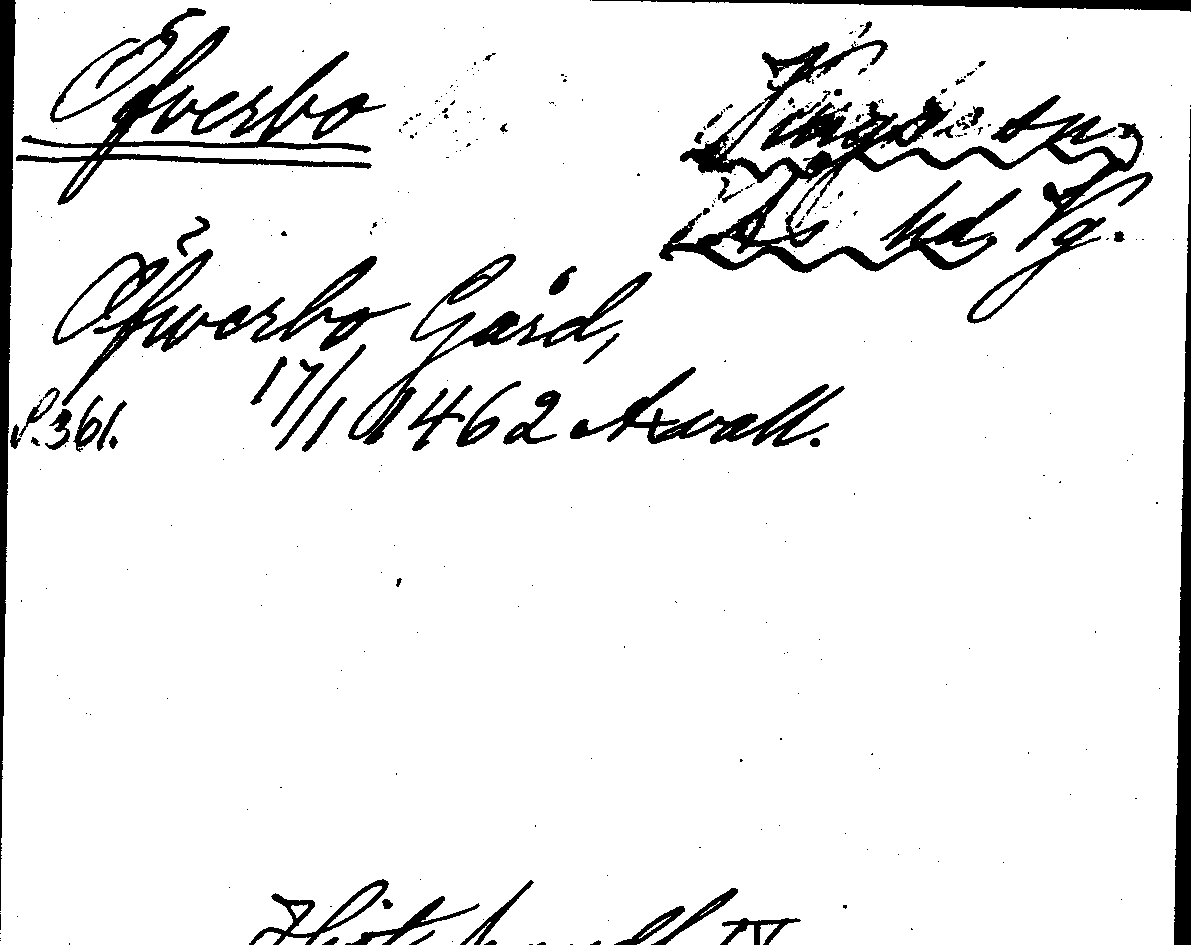 Öfverbo
Vings sn,
Ås hd, Vg.
Öfwerbo Gård,
S. 361. 17/1 1462 Axvall.